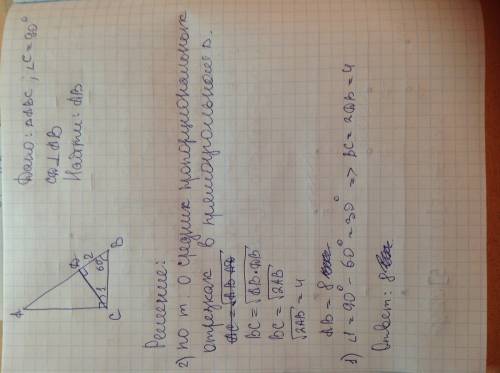 Дано: △ABC; ∠C=90°
CD⊥AB
Найти: AB
A
D
2
60°
B
1
C
Решение:
2) по т. о средних пропорциональных
отрезках в прямоугольном △.
BC=√AB·DB
BC=√2AB
√2AB=4
AB=8
1) ∠1=90°-60°=30° => BC=2DB=4
Ответ: 8